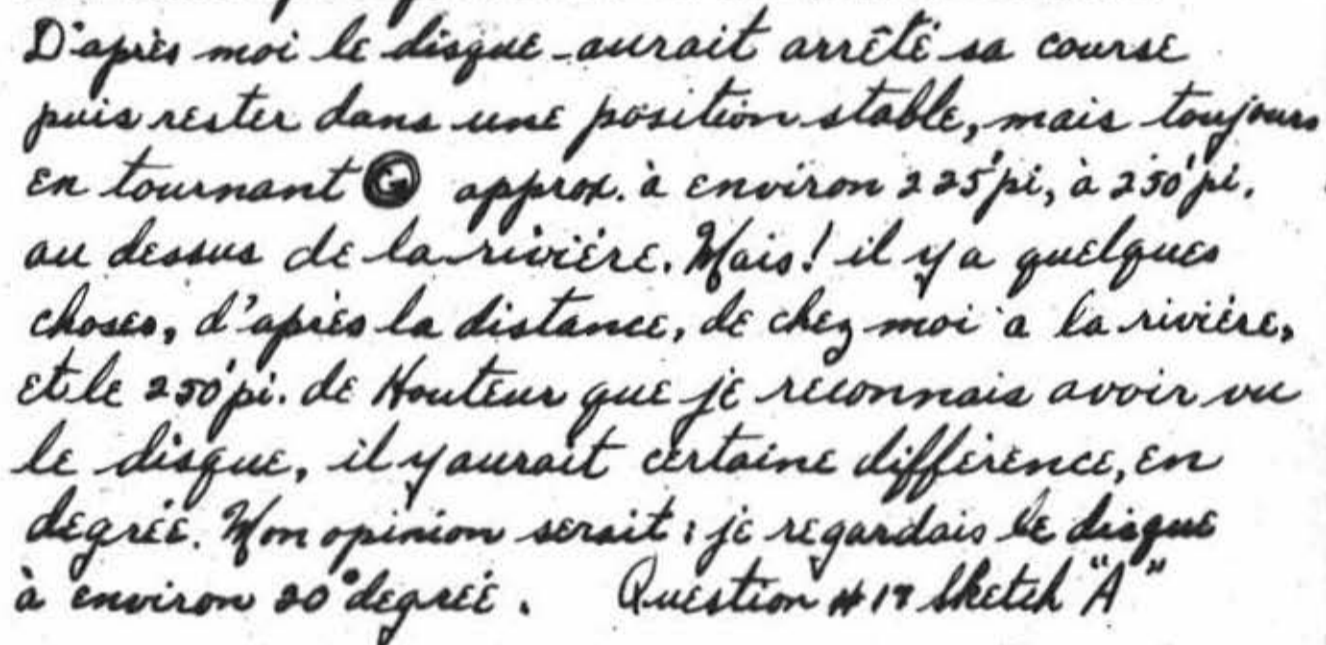 D'après moi le disque aurait arrêté sa course
puis rester dans une position stable, mais toujours
en tournant approx. à environ 225'pi, à 250'pi.
au dessus de la rivière. Mais! il y a quelques
choses, d'après la distance, de chez moi à la rivière,
et le 250'pi. de Hauteur que je reconnais avoir vu
le disque, il y aurait certaine différence, en
degrée. Mon opinion serait: je regardais le disque
à environ 20° degrée. Question #17 Sketch "A"